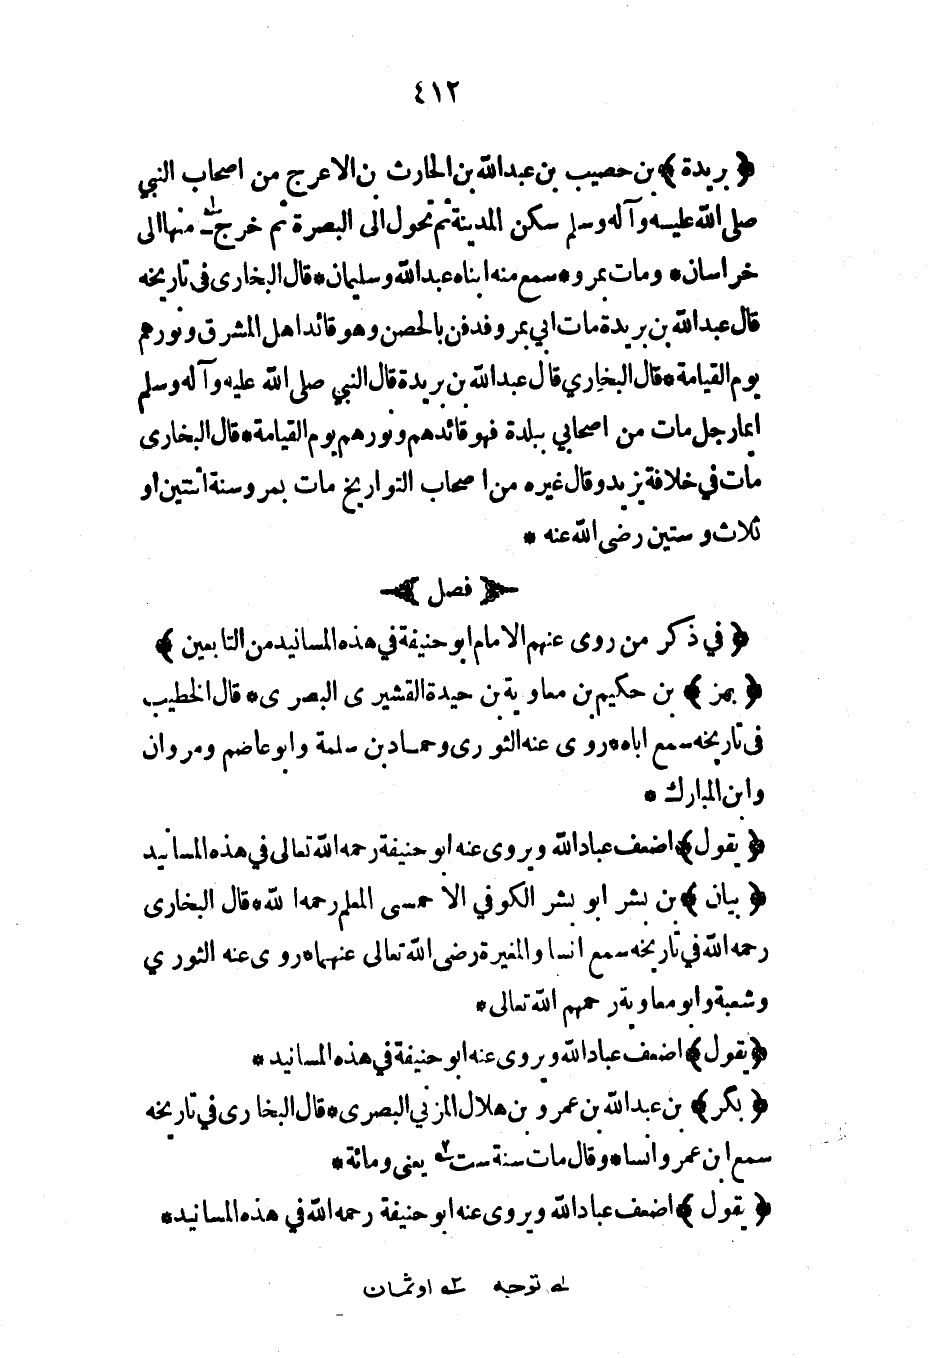 ٤١٢
﴿ بريدة ﴾ بن حصيب بن عبد الله بن الحارث بن الاعرج من اصحاب النبي
صلى الله عليه وآله وسلم سكن المدينة ثم تحول الى البصرة ثم خرج ١ــ منها الى
خراسان * ومات بمرو * سمع منه ابناه عبد الله وسليمان * قال البخارى فى تاريخه
قال عبد الله بن بريدة مات ابي بمرو فدفن بالحصن وهو قائد اهل المشرق ونورهم
يوم القيامة * قال البخاري قال عبد الله بن بريدة قال النبي صلى الله عليه وآله وسلم
ايما رجل مات من اصحابي ببلدة فهو قائدهم ونورهم يوم القيامة * قال البخارى
مات في خلافة يزيد وقال غيره من اصحاب التواريخ مات بمرو سنة اثنتين او
ثلاث وستين رضى الله عنه *
﴿ فصل ﴾
﴿ في ذكر من روى عنهم الامام ابو حنيفة في هذه المسانيد من التابعين ﴾
﴿ بهز ﴾ بن حكيم بن معاوية بن حيدة القشيرى البصرى * قال الخطيب
فى تاريخه سمع اباه * روى عنه الثورى وحماد بن سلمة وابو عاضم ومروان
وابن المبارك *
﴿ يقول ﴾ اضعف عباد الله ويروى عنه ابو حنيفة رحمه الله تعالى في هذه المسانيد
﴿ بيان ﴾ بن بشر ابو بشر الكوفي الاحمسى المعلم رحمه الله * قال البخارى
رحمه الله في تاريخه سمع انسا والمغيرة رضى الله تعالى عنهما * روى عنه الثوري
وشعبة وابو معاوية رحمهم الله تعالى *
﴿ يقول ﴾ اضعف عباد الله ويروى عنه ابو حنيفة في هذه المسانيد *
﴿ بكر ﴾ بن عبد الله بن عمرو بن هلال المزني البصرى * قال البخارى في تاريخه
سمع ابن عمر وانسا * وقال مات سنة ست ٢ــه يعنى ومائة *
﴿ يقول ﴾ اضعف عباد الله ويروى عنه ابو حنيفة رحمه الله في هذه المسانيد *
١ــه توجه ٢ــه اوثمان